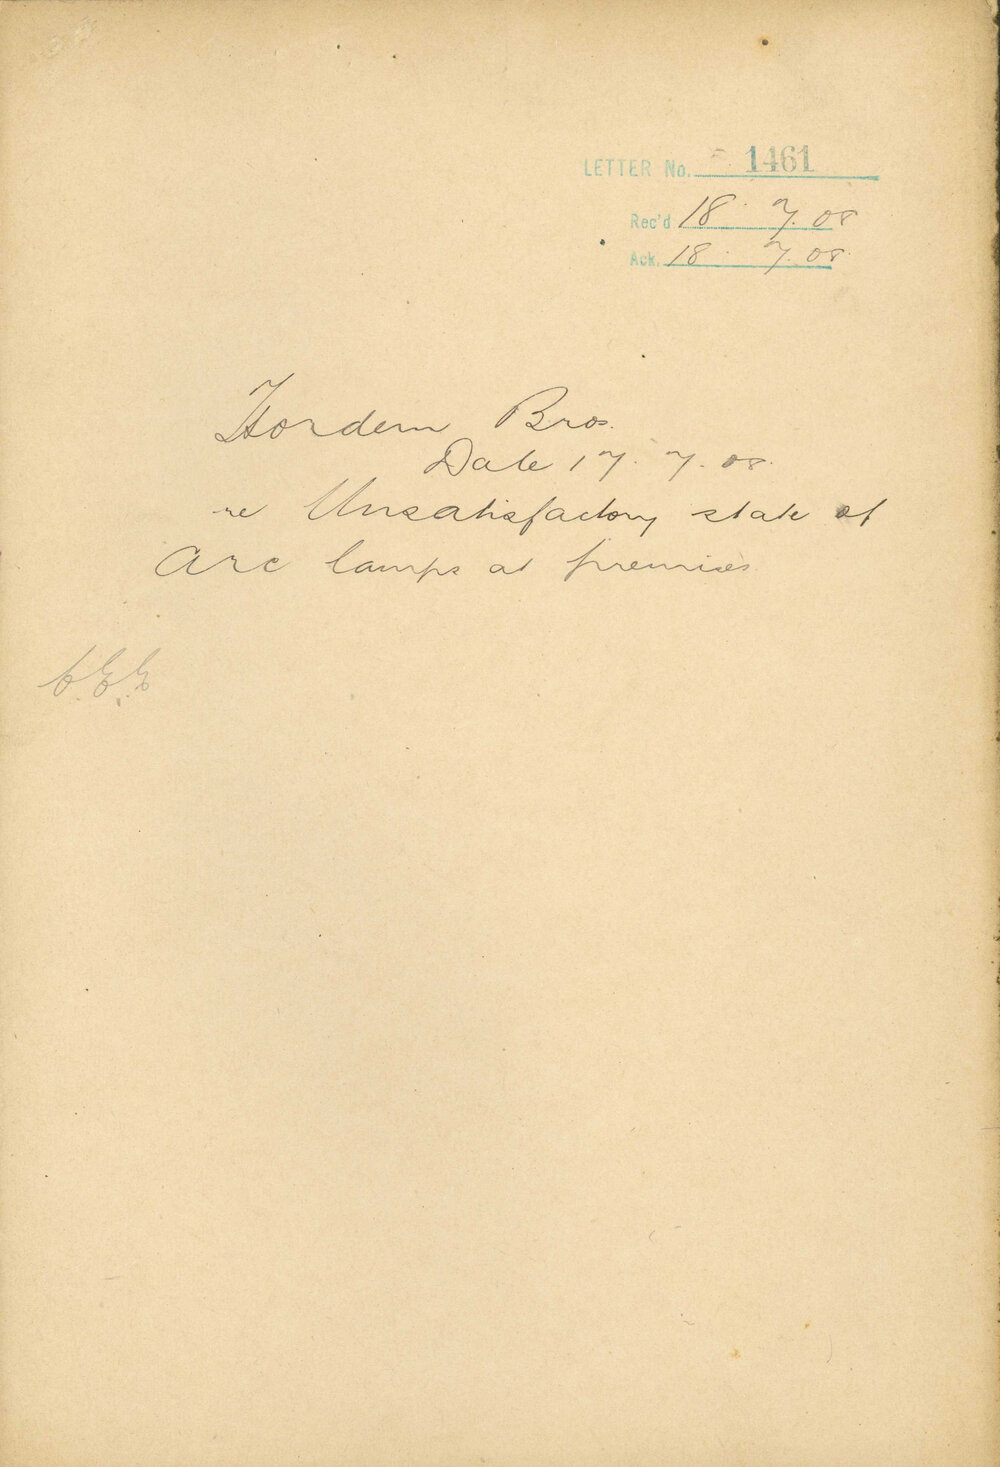 LETTER No. 1461
Rec'd 18. 7. 08
Ack. 18. 7. 08
Hordern Bros.
Date 17. 7. 08.
re Unsatisfactory state of
Arc lamps at premises